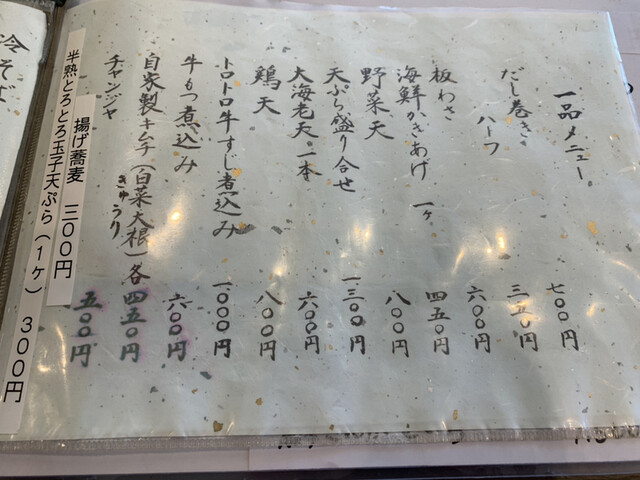 一品メニュー
だし巻き 七〇〇円
ハーフ 三五〇円
板わさ 六〇〇円
海鮮かきあげ 一ヶ 四五〇円
野菜天 八〇〇円
天ぷら盛り合せ 一三〇〇円
大海老天 一本 六〇〇円
鶏天 八〇〇円
トロトロ牛すじ煮込み 一〇〇〇円
牛もつ煮込み 六〇〇円
自家製キムチ(白菜大根)各 四五〇円
きゅうり
チャンジャ 五〇〇円
揚げ蕎麦 三〇〇円
半熟とろとろ玉子天ぷら(1ヶ) 300円
冷そば